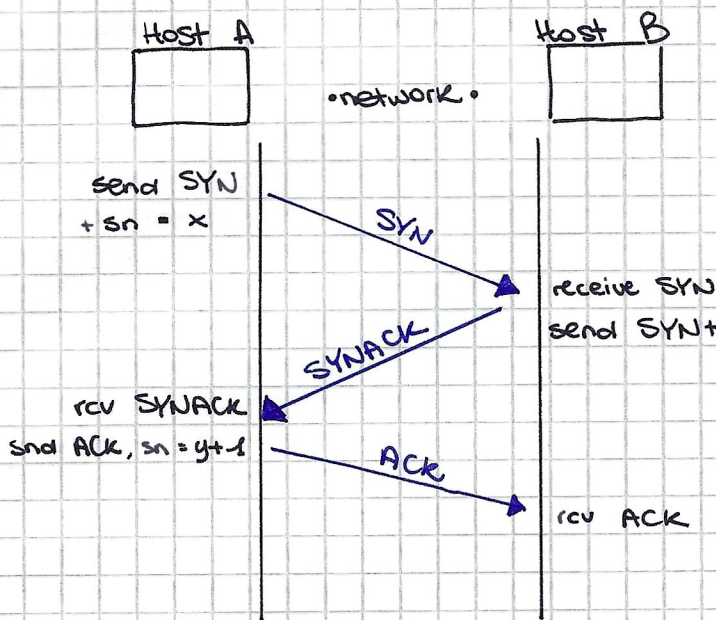 Host A
Host B
•network•
send SYN
+ sn = x
SYN
receive SYN
send SYN+
SYNACK
rcv SYNACK
snd ACK, sn = y+1
ACK
rcv ACK